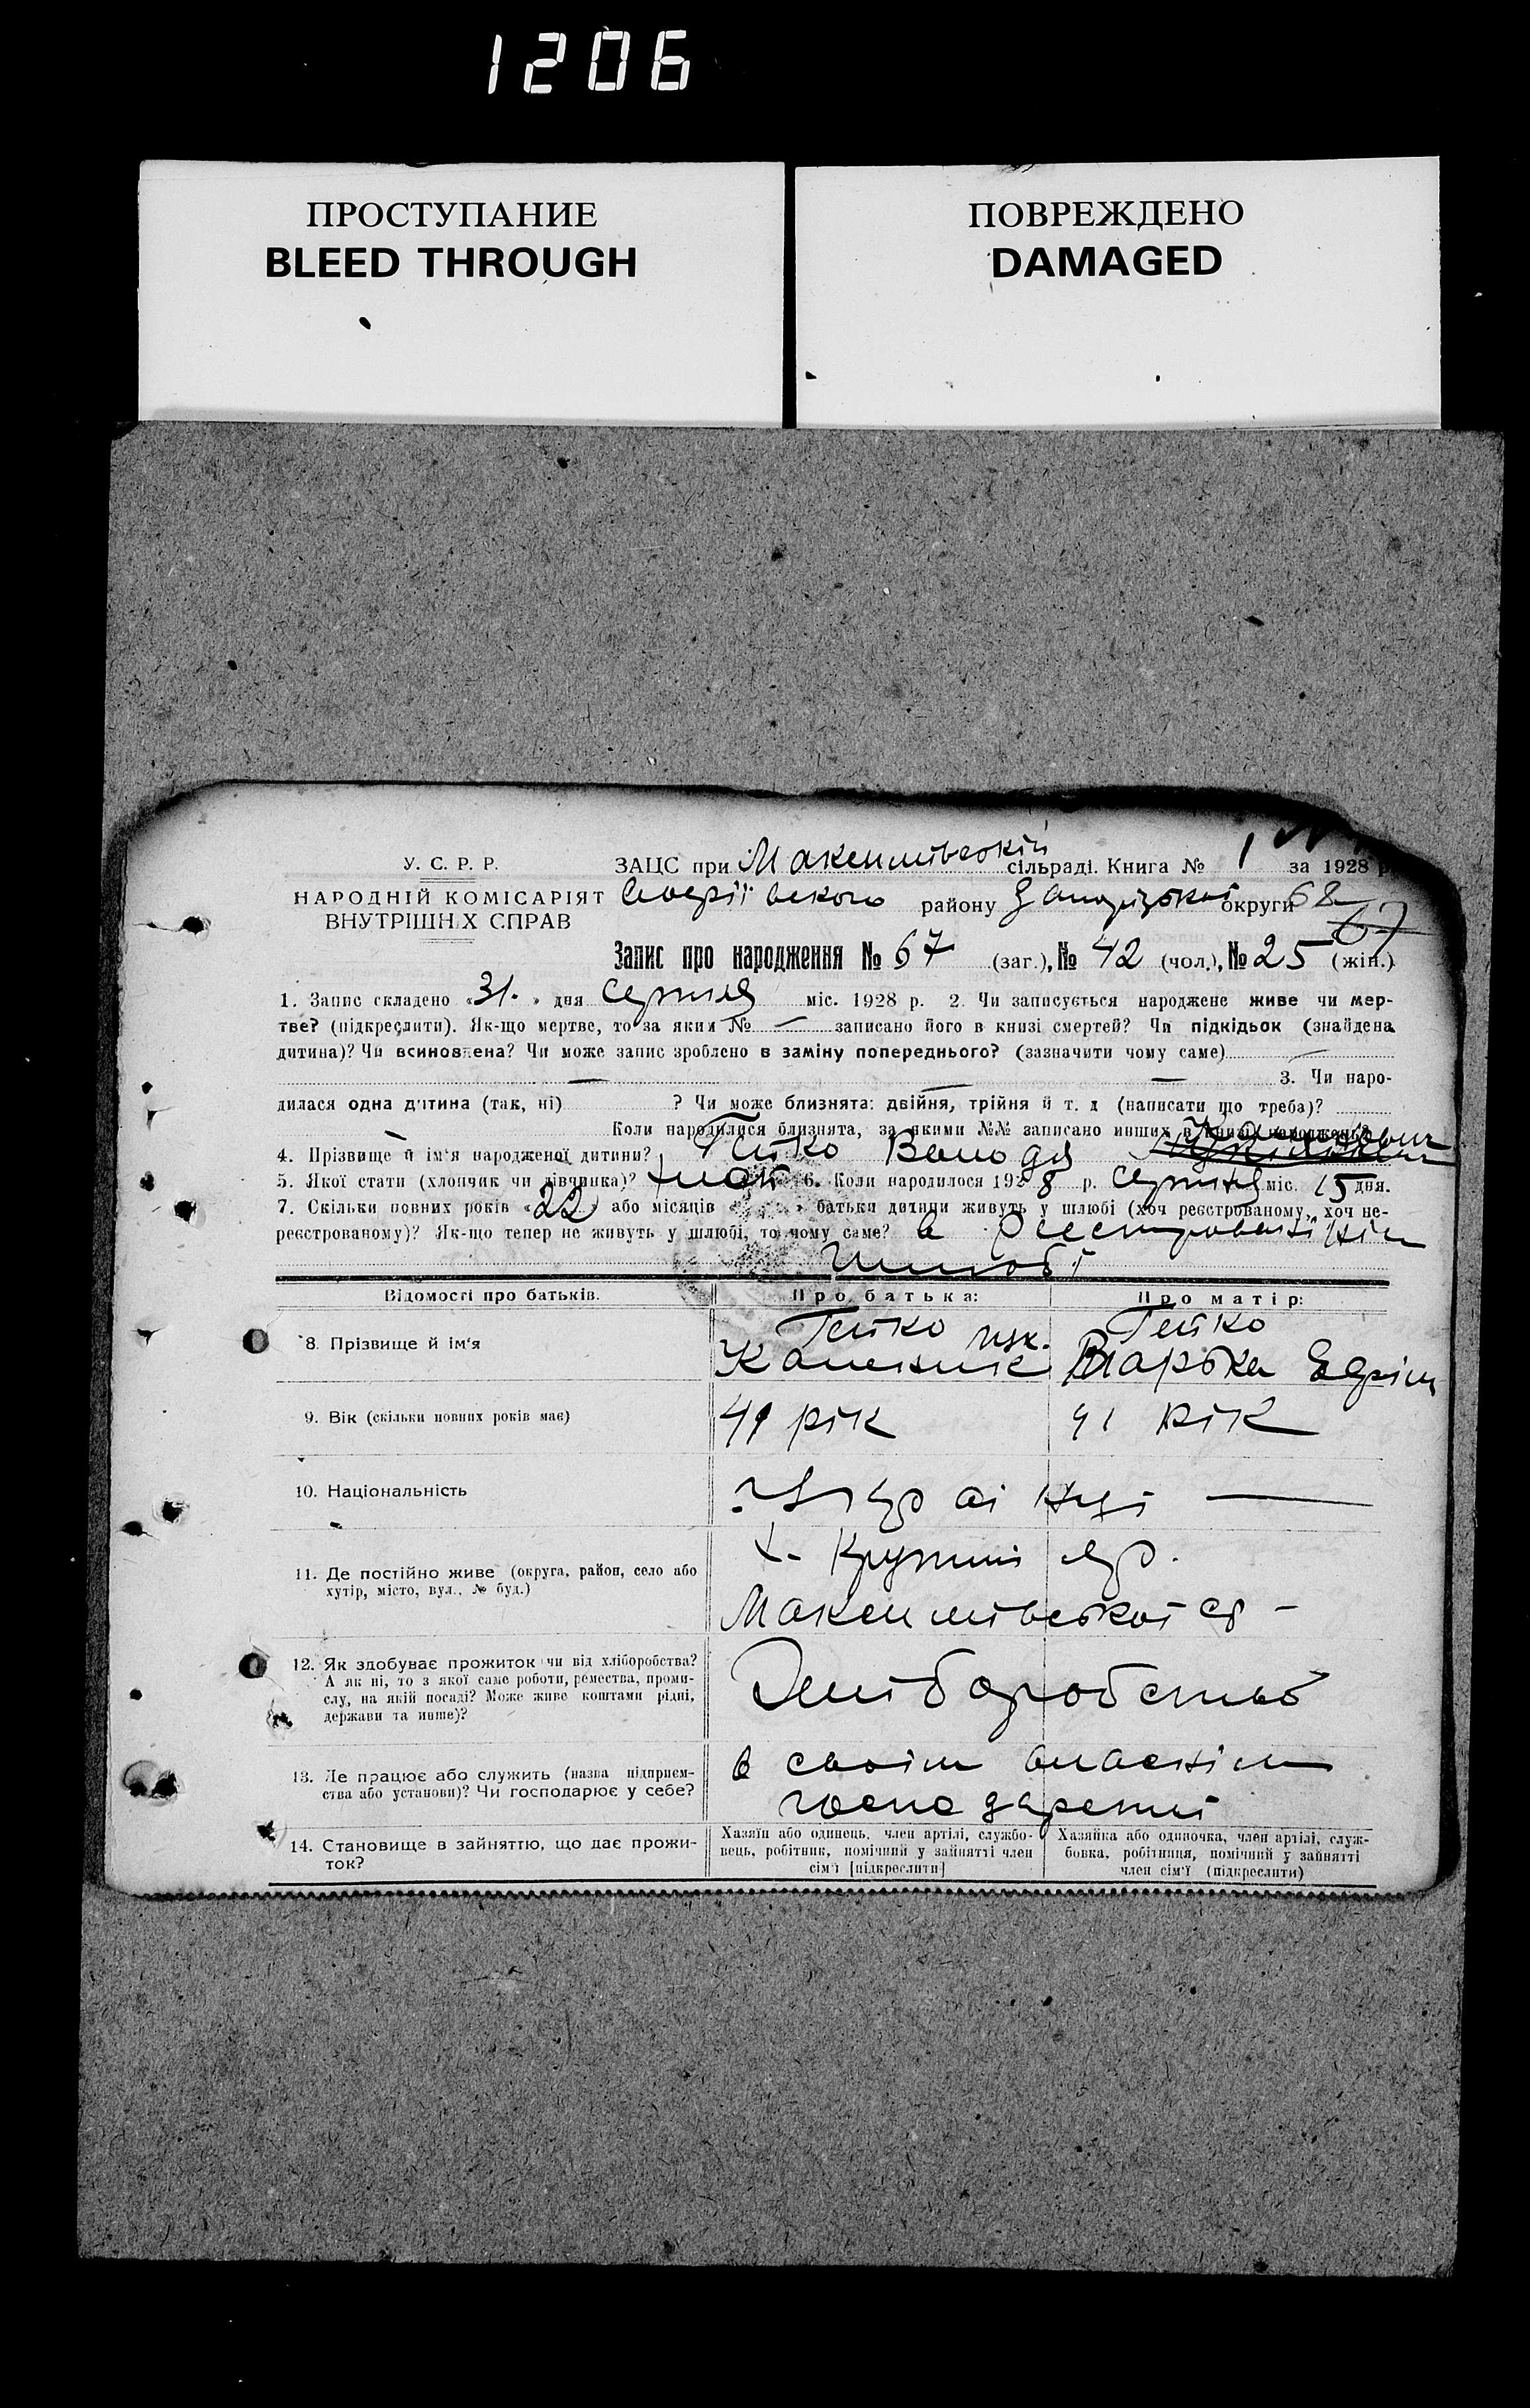 1206
ПРОСТУПАНИЕ
BLEED THROUGH
ПОВРЕЖДЕНО
DAMAGED
У. С. Р. Р.
НАРОДНІЙ КОМІСАРІЯТ
ВНУТРІШНІХ СПРАВ
ЗАЦС при сільраді. Книга № 1 за 1928 р
району Запорізької округи 68
67
Запис про народження № 67 (заг.), № 42 (чол.), № 25 (жін.)
1. Запис складено «31.» дня серпня міс. 1928 р. 2. Чи записується народжене живе чи мер-
тве? (підкреслити). Як-що мертве, то за яким № — записано його в книзі смертей? Чи підкідьок (знайдена
дитина)? Чи всиновлена? Чи може запис зроблено в заміну попереднього? (зазначити чому саме) —
— — — 3. Чи наро-
дилася одна дитина (так, ні) ? Чи може близнята: двійня, трійня й т. д (написати що треба)?
Коли народилися близнята, за якими №№ записано инших в книзі народжень?
4. Прізвище й ім'я народженої дитини? Гейко Володя
5. Якої стати (хлопчик чи дівчинка)? 6. Коли народилося 1928 р. серпня міс. 15 дня.
7. Скільки повних років «22» або місяців « » батьки дитини живуть у шлюбі (хоч реєстрованому, хоч не-
реєстрованому)? Як-що тепер не живуть у шлюбі, то чому саме? в
шлюбі
Відомості про батьків. Про батька: Про матір:
8. Прізвище й ім'я Гейко Гейко
Марька
9. Вік (скільки повних років має) 41 рік 41 рік
10. Національність —
11. Де постійно живе (округа, район, село або
хутір, місто, вул., № буд.)
х. Крутий яр.
12. Як здобуває прожиток чи від хліборобства?
А як ні, то з якої саме роботи, ремества, проми-
слу, на якій посаді? Може живе коштами рідні,
держави та инше)?
13. Де працює або служить (назва підприєм-
ства або установи)? Чи господарює у себе?
в своїм власнім
14. Становище в зайняттю, що дає прожи-
ток?
Хазяїн або одинець, член артілі, службо-
вець, робітник, помічний у зайнятті член
сім'ї [підкреслити]
Хазяйка або одиночка, член артілі, служ-
бовка, робітниця, помічний у зайнятті
член сім'ї (підкреслити)